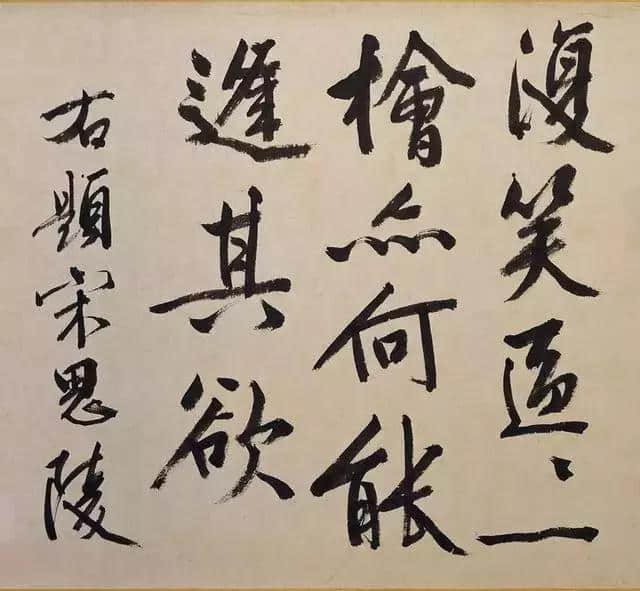 復笑區〻一
檜亦何能
逢其欲
右題宋思陵